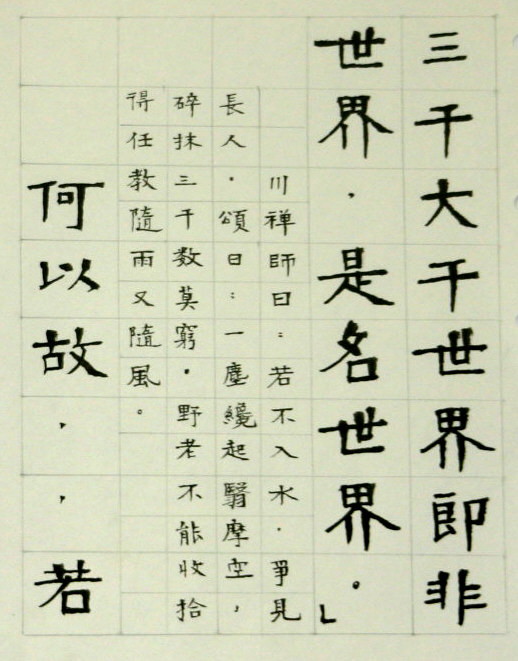 三千大千世界即非
世界．是名世界。」
川禅師曰：若不入水．爭見
長人．頌曰：一塵纔起翳摩空，
碎抹三千数莫窮．野老不能收拾
得任教隨雨又隨風。
何以故，，若